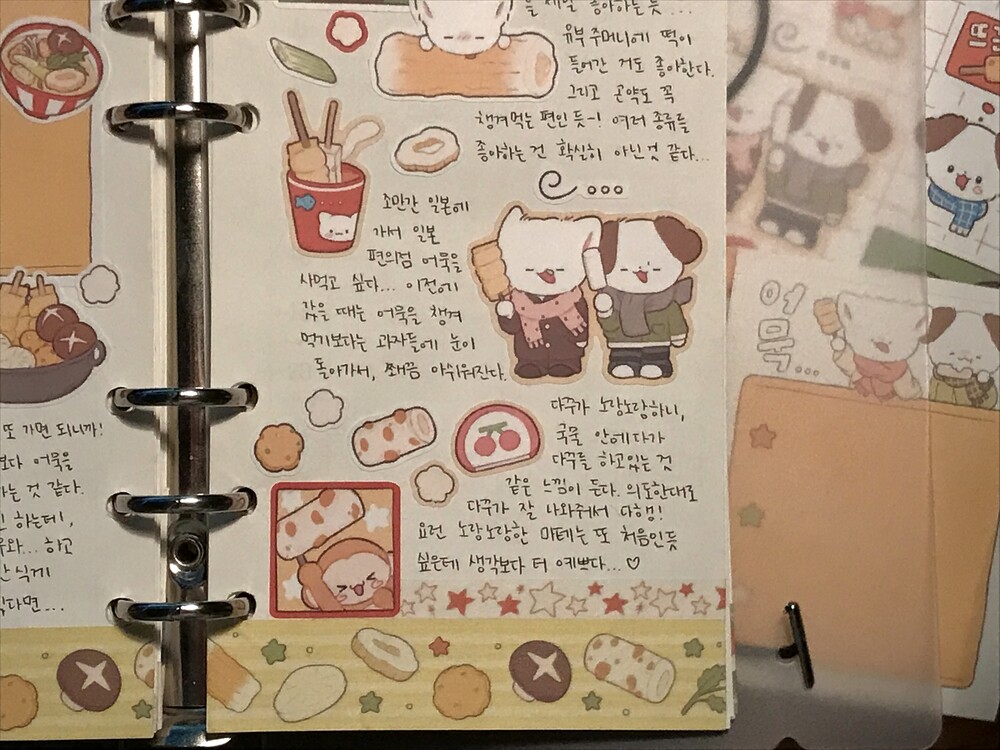 을 제일 좋아하는 듯...
유부 주머니에 떡이
들어간 거도 좋아한다.
그리고 곤약도 꼭
챙겨먹는 편인 듯~! 여러 종류를
좋아하는 건 확실히 아닌 것 같다...
조만간 일본에
가서 일본
편의점 어묵을
사먹고 싶다... 이전에
갔을 때는 어묵을 챙겨
먹기보다는 과자들에 눈이
돌아가서, 쬐끔 아쉬워진다.
다꾸가 노랑노랑하니,
국물 안에다가
다꾸를 하고있는 것
같은 느낌이 든다. 의도한대로
다꾸가 잘 나와줘서 다행!
요런 노랑노랑한 마테는 또 처음인듯
싶은데 생각보다 더 예쁘다...♡
또 가면 되니까!
보다 어묵을
는 것 같다.
하는데,
하고
식게
다면...
어
묵...